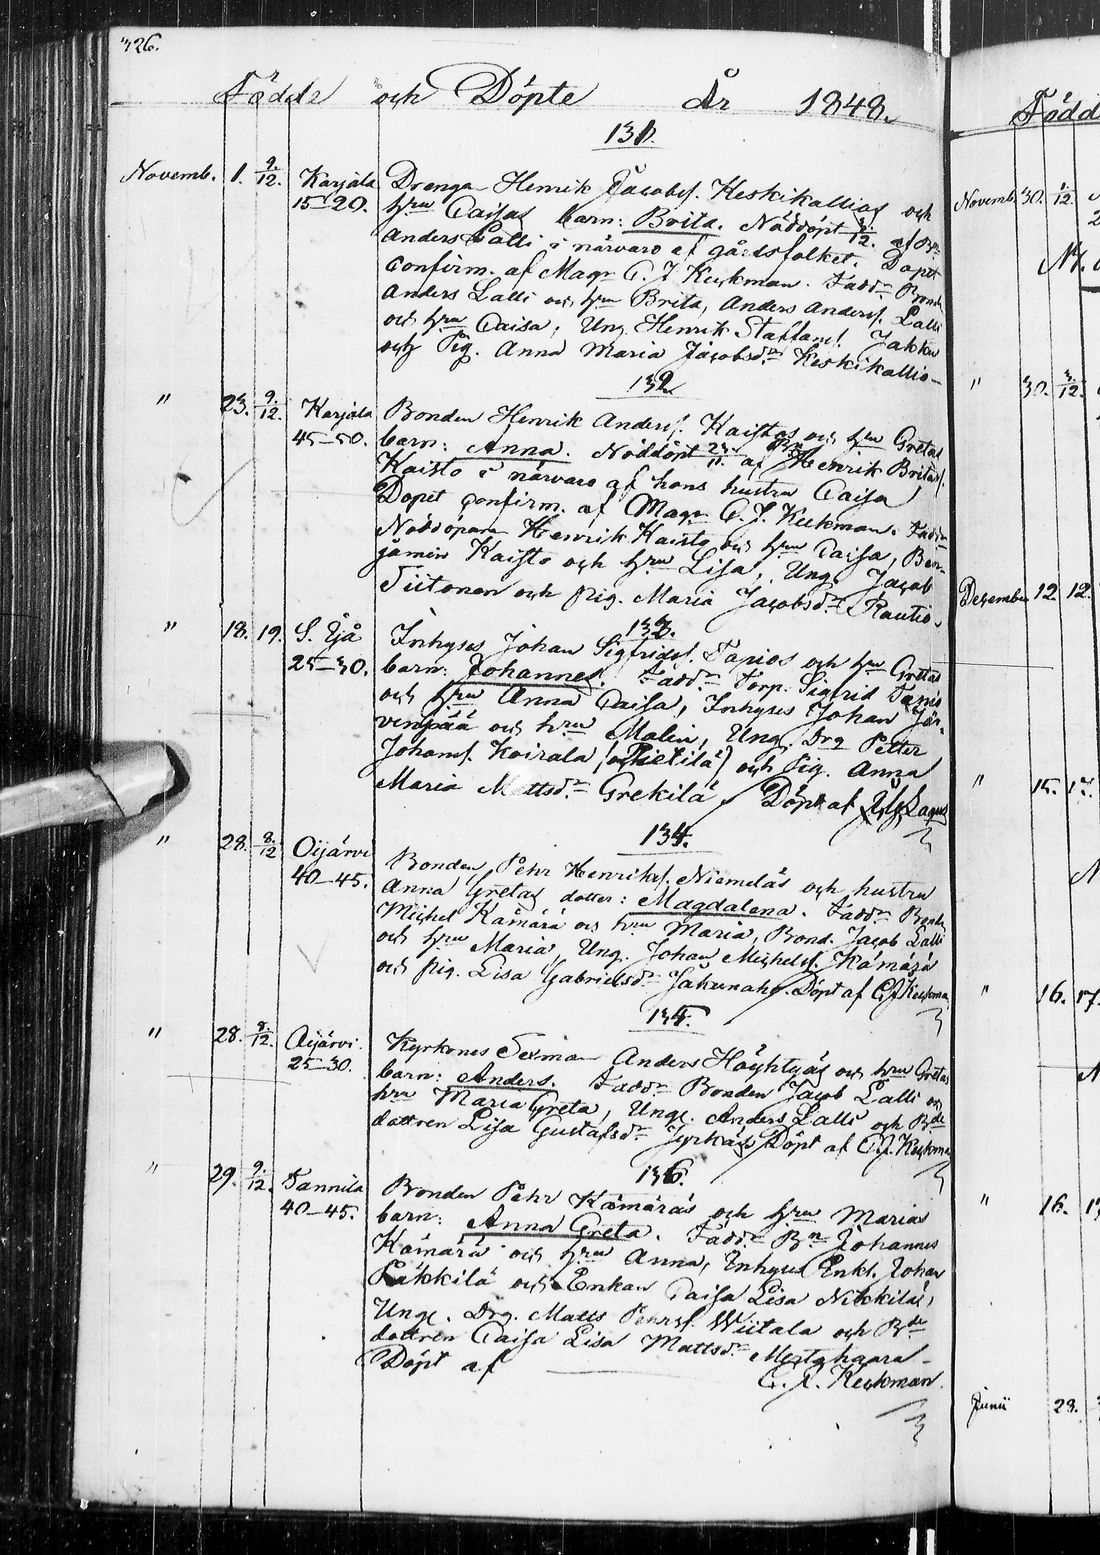 326.
Födde och Döpte År 1848.
131.
Novemb. 1. 9/12. Karjala Drengen Henrik Jacobss. Keskikallios och
15–20. hru Caisas barn: Brita. Nöddöpt 3/12. af Bn
Anders Lalli i närvaro af gårdsfolket. Dopet
confirm. af Magr C. J. Keckman. Fadd. Bonden
Anders Lalli och hru Brita, Anders Anderss. Lalli
och hru Caisa, Ung. Henrik Staffanss. Jakku
och Pig. Anna Maria Jacobsdr Keskikallio–
132
" 23. 9/12. Karjala Bonden Henrik Anderss. Kaistos och hru Gretas
45–50. barn: Anna. Nöddöpt 23/11. af Bn Henrik
Kaisto i närvaro af hans hustru Caisa,
Dopet confirm. af Magr C. J. Keckman. Fadd.
Nöddöparen Henrik Kaisto och hru Caisa, Ben-
jamin Kaisto och hru Lisa, Ung. Jacob
Siitonen och pig. Maria Jacobsdr Rautio.
133.
" 18. 19. S. Ijå Inhyses Johan Sigfridss. Tapios och hru Gretas
25–30. barn: Johannes. Fadd. Torp. Sigfrid Tapio
och hru Anna Caisa, Inhyses Johan Jär-
venpää och hru Malin, Ung. Drg Petter
Johanss. Koirala (Pietilä) och Pig. Anna
Maria Mattsdr Grekilä / Döpt af Lagus
134.
" 28. 8/12 Oijärvi Bonden Pehr Henrikss. Niemeläs och hustru
40–45. Anna Gretas dotter: Magdalena. Fadd. Bonden
Michel Kämärä och hru Maria, Bond. Jacob Lalli
och hru Maria, Ung. Johan Michelss. Kämärä
och pig. Lisa Gabrielsdr Jäkunaho. Döpt af C. J. Keckman
135.
" 28. 8/12. Oijärvi. Kyrkones Sexman Anders Höyhtyäs och hru Gretas
25–30. barn: Anders. Fadd. Bonden Jacob Lalli och
hru Maria Greta, Unge. Anders Lalli och Bde
dottren Lisa Gustafsdr Jyrkäs / Döpt af C. J. Keckman
136.
" 29. 9/12. Tannila Bonden Pehr Kämäräs och hru Marias
40–45. barn: Anna Greta. Fadd. Bn Johannes
Kämärä och hru Anna, Inhyses Enkl. Johan
Läkkilä och Enkan Caisa Lisa Nikkilä,
Unge. Drg. Matts Pehrss. Wiitala och Bde
dottren Caisa Lisa Mattsdr Mertahaara–
Döpt af C. J. Keckman.
Född
Novemb. 30. 1/12.
" 30. 3/12.
Dezember 12. 12.
" 15. 17.
" 16. 17.
" 16.
Junii 23.